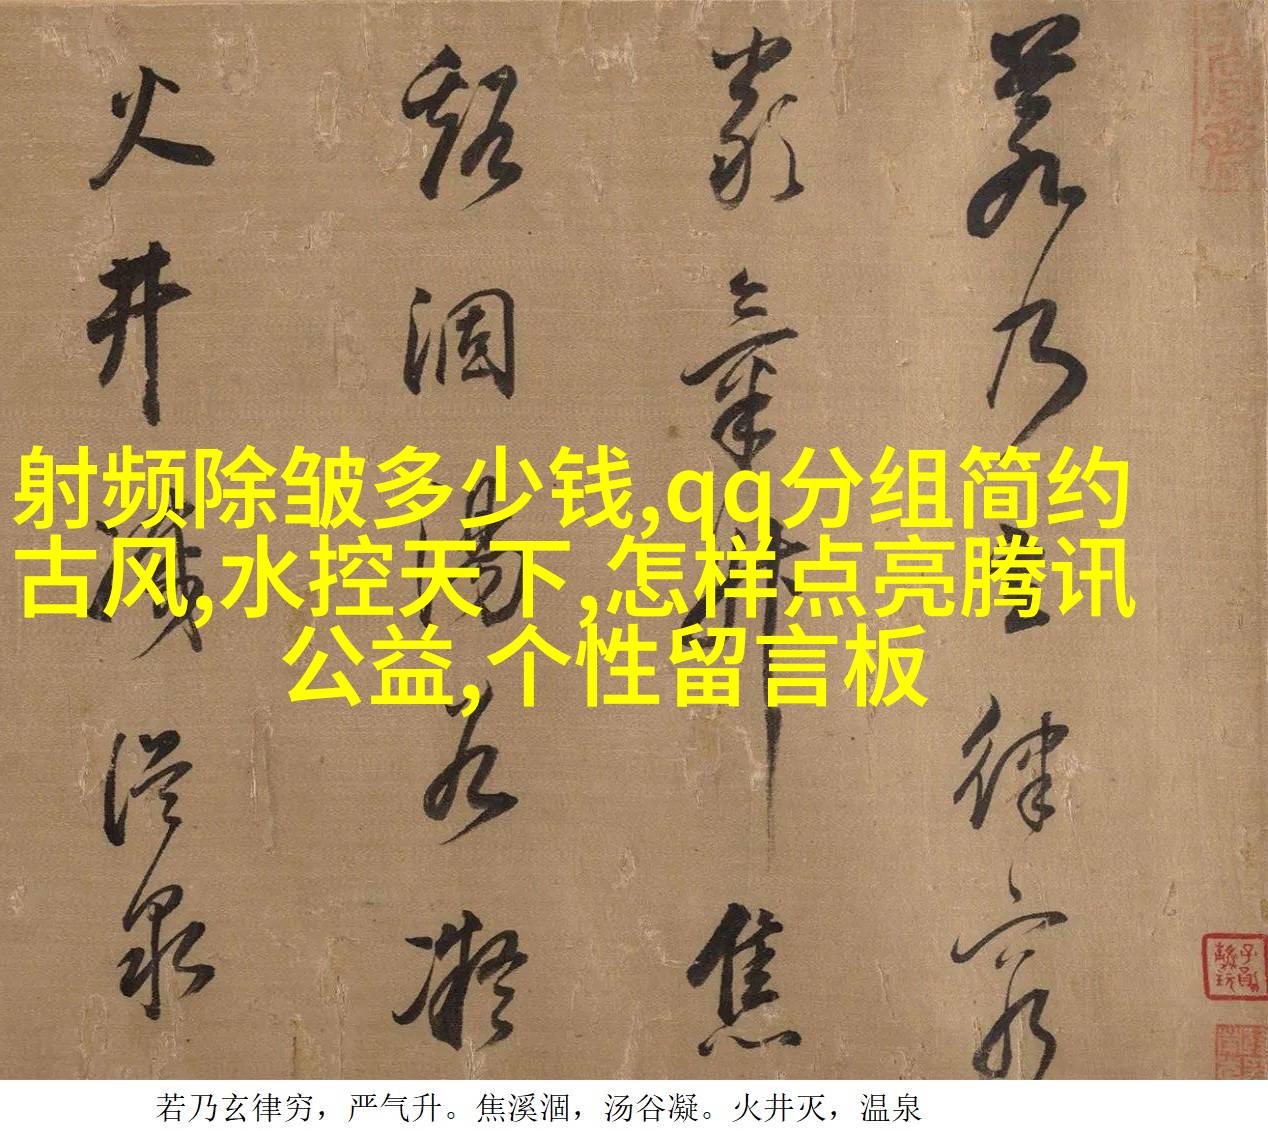 若乃玄律窮
嚴氣升焦
谿涸湯谷凝
火井滅温泉
射频除皱多少钱,qq分组简约
古风,水控天下,怎样点亮腾讯
公益,个性留言板
若乃玄律穷，严气升。焦溪涸，汤谷凝。火井灭，温泉